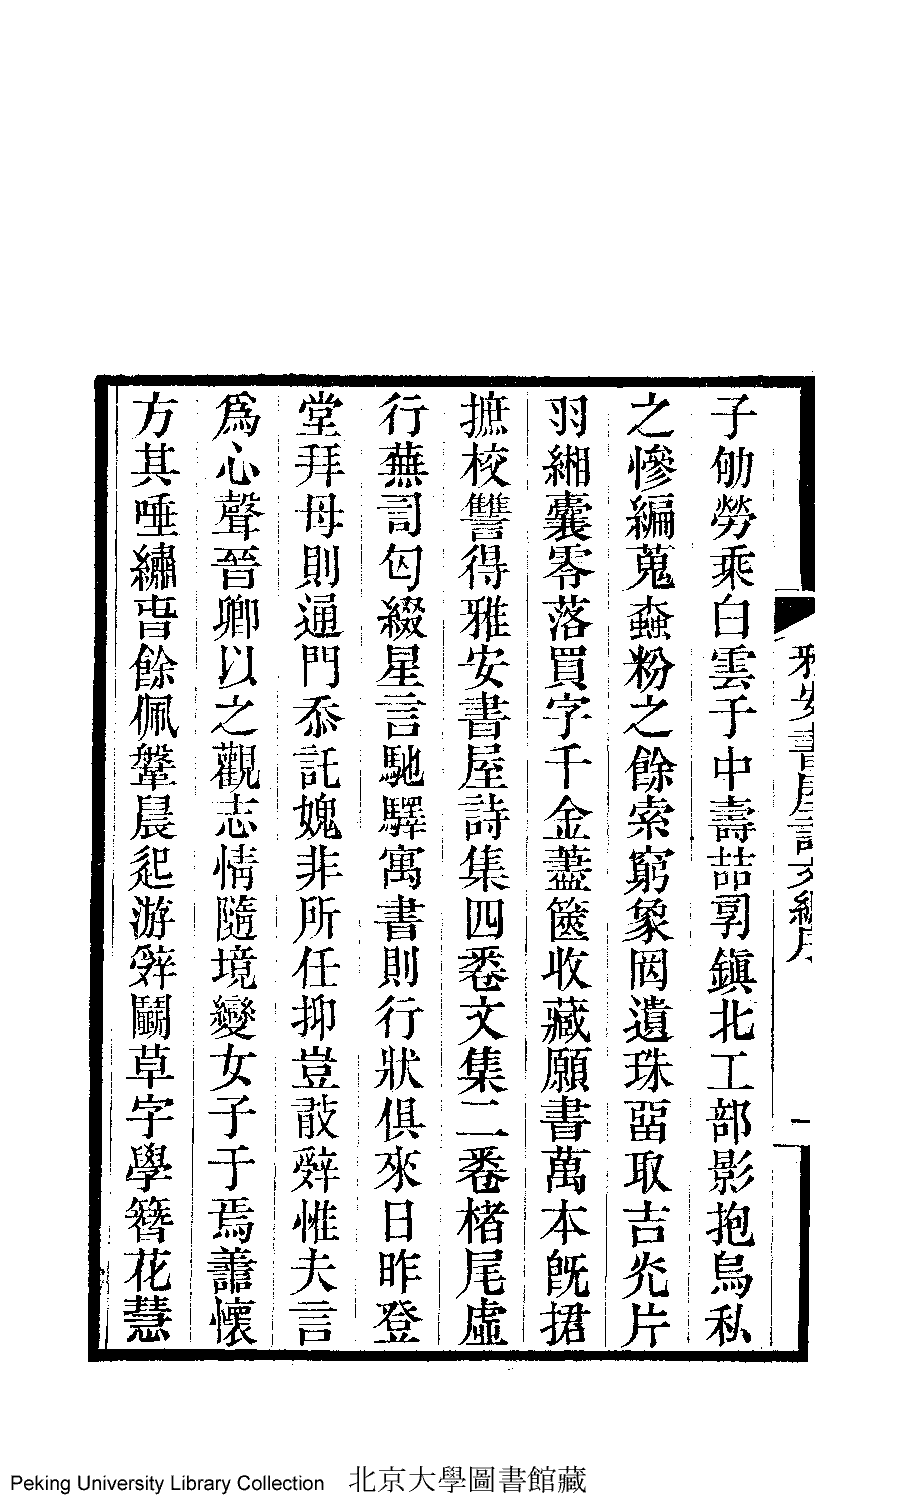 子劬勞乘白雲于中壽喆𠭥鎮北工部影抱烏私
之慘編蒐蟫粉之餘索窮象罔遺珠畱取吉光片
羽緗囊零落買字千金藎篋收藏願書萬本旣捃
摭校讐得雅安書屋詩集四卷文集二卷楮尾虛
行蕪詞匃綴星言馳驛寓書則行狀俱來日昨登
堂拜母則通門忝託媿非所任抑豈敢辭惟夫言
爲心聲晉卿以之觀志情隨境變女子于焉善懷
方其唾繡旹餘佩鞶晨起游辭鬭草字學簪花慧
雅安書屋詩文編序
一
Peking University Library Collection 北京大學圖書館藏